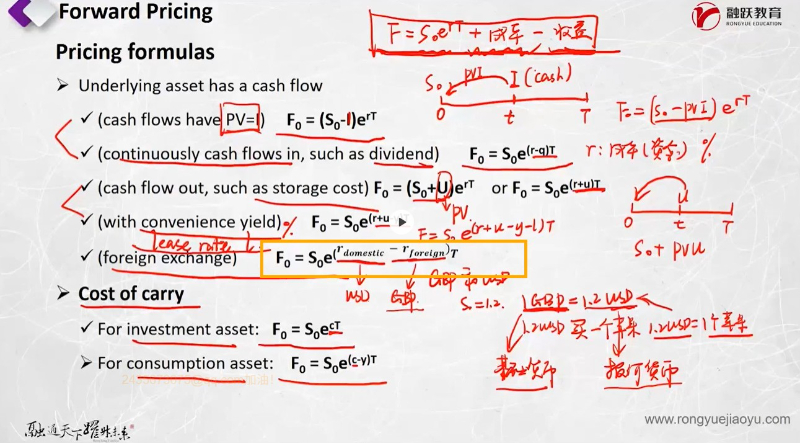 Forward Pricing
融跃教育
RONGYUE EDUCATION
F = S₀e^rT + 成本 - 收益
Pricing formulas
➢ Underlying asset has a cash flow
S₀ PVI I (cash)
0 t T
✓ (cash flows have PV=I) F₀ = (S₀-I)e^rT
F₀ = (S₀-PVI)e^rT
✓ (continuously cash flows in, such as dividend) F₀ = S₀e^(r-q)T
r: 成本(资金) %
✓ (cash flow out, such as storage cost) F₀ = (S₀+U)e^rT or F₀ = S₀e^(r+u)T
PV
u
0 t T
S₀ + PVU
✓ (with convenience yield) % F₀ = S₀e^(r+u
F = S₀e^(r+u-y-l)T
lease rate l
✓ (foreign exchange) F₀ = S₀e^(r_domestic - r_foreign)T
USD GBP
GBP USD
S₀ = 1.2
1GBP = 1.2USD
➢ Cost of carry
✓ For investment asset: F₀ = S₀e^cT
1.2USD 买一个苹果 1.2USD = 1个苹果
✓ For consumption asset: F₀ = S₀e^(c-y)T
基础货币 报价货币
融通天下 耀我未来
www.rongyuejiaoyu.com